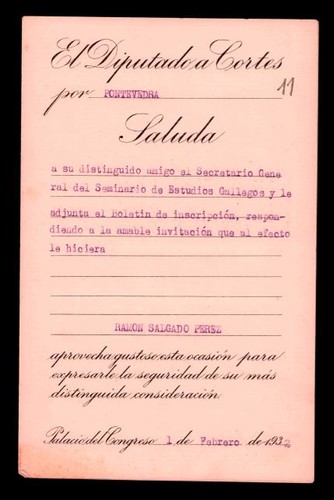 El Diputado a Cortes
por PONTEVEDRA
11
Saluda
a su distinguido amigo el Secretario Gene
ral del Seminario de Estudios Gallegos y le
adjunta el boletin de inscripción, respon-
diendo a la amable invitación que al efecto
le hiciera
RAMÓN SALGADO PEREZ
aprovecha gustoso esta ocasión para
expresarle la seguridad de su más
distinguida consideración
Palacio del Congreso 1 de Febrero de 1932